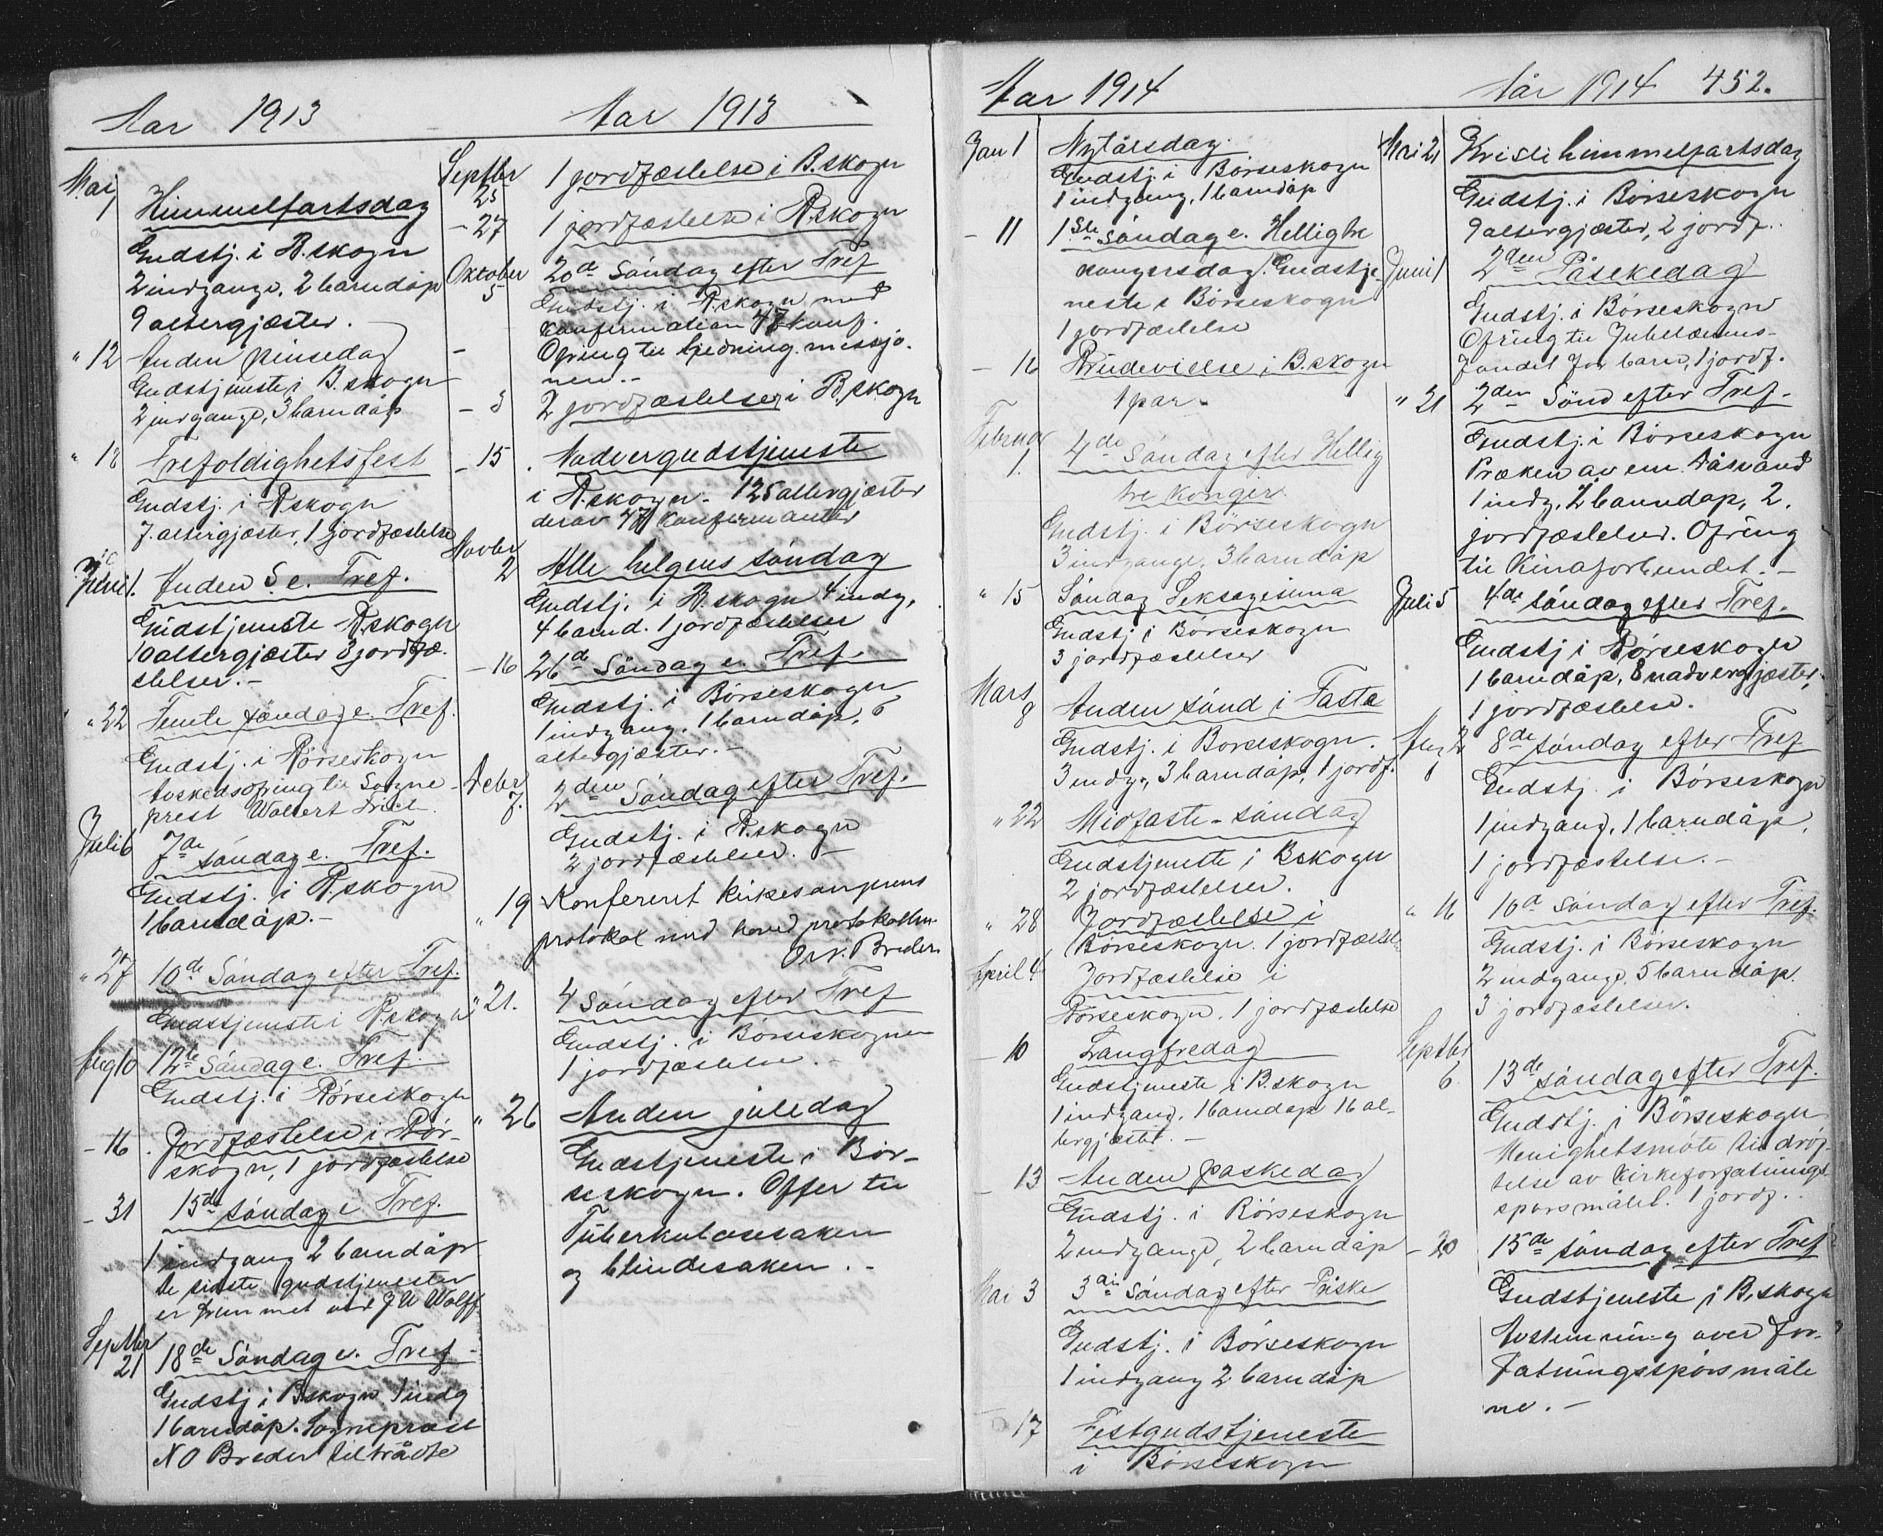 Aar 1913
Mai
1 Himmelfartsdag
Gudstj. i B.skogn
2 indgange, 2 barndåp
9 altergjæster.
" 12 Anden pinsedag
Gudstjeneste i B.skogn
2 indgange, 3 barndåp
" 18 Trefoldighetsfest
Gudstj. i B.skogn
7 altergjæster, 1 jordfæstelse
Juni 1. Anden S. e. Tref.
Gudstjeneste B.skogn
10 altergjæster 3 jordfæ-
stelser.-
" 22 Femte søndag e. Tref.
Gudstj. i Børseskogn
til Sogne-
prest
Juli 6 7de søndag e. Tref.
Gudstj. i B.skogn
1 barndåp.-
" 27 10de Søndag efter Tref.
Gudstjeneste i B.skogn
Aug 10 12te Søndag e. Tref.
Gudstj. i Børseskogn
- 16 Jordfæstelse i Bør-
skogn, 1 jordfæstelse
- 31 15de søndag e Tref.
1 indgang 2 barndåp
De sidste gudstjenester
er ved Wolff
Septbr
21 18de Søndag e. Tref.
Gudstj i B.skogn 1 indg
1 barndåp. Sognepræst
N O Breder tiltrådte
Aar 1913
Septbr
25 1 jordfæstelse i B.skogn
- 27 1 jordfæstelse i B.skogn
Oktober
5 20de Søndag efter Tref
Gudstj. i B.skogn med
Konfirmation 47 konf.
Ofring til hedningmissjo-
nen.-
- 3 2 jordfæstelser i B.skogn
- 15 Nadvergudstjeneste
i B.skogn. 125 altergjæster
derav 47 konfirmanter
Novbr
2 Alle helgens søndag
Gudstj. i B.skogn 4 indg.
4 barnd. 1 jordfæstelser
- 16 26de Søndag e. Tref.
Gudstj. i Børseskogn
1 indgang, 1 barndåp, 6
altergjæster.-
Debr
7. 2den Søndag efter Tref.
Gudstj. i B.skogn
2 jordfæstelser.
" 19 Konferert kirkesangerens
protokol med hovedprotokollen
Breder
" 21. 4 Søndag efter Tref
Gudstj. i Børseskogn
1 jordfæstelse.-
" 26 Anden juledag
Gudstjeneste i Bør-
seskogn. Offer til
Tuberkulosesaken
og blindesaken.-
Aar 1914
Jan 1 Nytårsdag
Gudstj. i Børseskogn
1 indgang, 1 barndåp
- 11 1ste Søndag e. Helligtre
kongersdag. Gudstje-
neste i Børseskogn
1 jordfæstelse
- 16 Brudevielse i B.skogn
1 par-
Februar
1. 4de Søndag efter Hellig
tre konger.
Gudstj. i Børseskogn
3 indgange, 3 barndåp
" 15 Søndag Seksagesima
Gudstj i Børseskogn
3 jordfæstelser
Mars
8 Anden sønd i Faste
Gudstj. i Børseskogn.
3 indg., 3 barndåp, 1 jordf.
" 22 Midfaste-søndag
Gudstjeneste i B.skogn
2 jordfæstelser.
" 28 Jordfæstelse i
Børseskogn. 1 jordfæstelse
April 4 Jordfæstelse i
Børseskogn. 1 jordfæstelse
- 10 Langfredag
Gudstjeneste i B.skogn
1 indgang, 1 barndåp 16 al-
tergjæster.-
- 13 Anden paskedag
Gudstj. i Børseskogn
2 indgange, 2 barndåp
Mai 3 3die Søndag efter Påske
Gudstj. i Børseskogn
1 indgang 2 barndåp
17 Festgudstjeneste
i Børseskogn
Aar 1914 452.
Mai 21 Kristi himmelfartsdag
Gudstj. i Børseskogn
9 altergjæster, 2 jordf.
Juni 1 2den Påskedag
Gudstj. i Børseskogn
Ofring til Jubilæums-
fondet for barn, 1 jordf.
" 21 2den Sønd efter Tref.
Gudstj. i Børseskogn
Præken av em.
1 indg, 2 barndåp, 2.
jordfæstelser. Ofring
til Kinaforbundet.-
Juli 5 4de søndag efter Tref.
Gudstj i Børseskogn
1 barndåp, 8 nadvergjæster,
1 jordfæstelse.
Aug 2 8de søndag efter Tref
Gudstj. i Børseskogn
1 indgang, 1 barndåp,
1 jordfæstelse.-
" 16 10d søndag efter Tref.
Gudstj. i Børseskogn
2 indgange, 5 barndåp.
3 jordfæstelser.
Septbr
6. 13de søndag efter Tref.
Gudstj. i Børseskogn
Menighetsmøte til drøf-
telse av kirkeforfatnings-
spørsmålet. 1 jordf..
- 20 15de søndag efter Tref
Gudstjeneste i B.skogn
Avstemning over for-
fatningsspørsmåle
ne.-